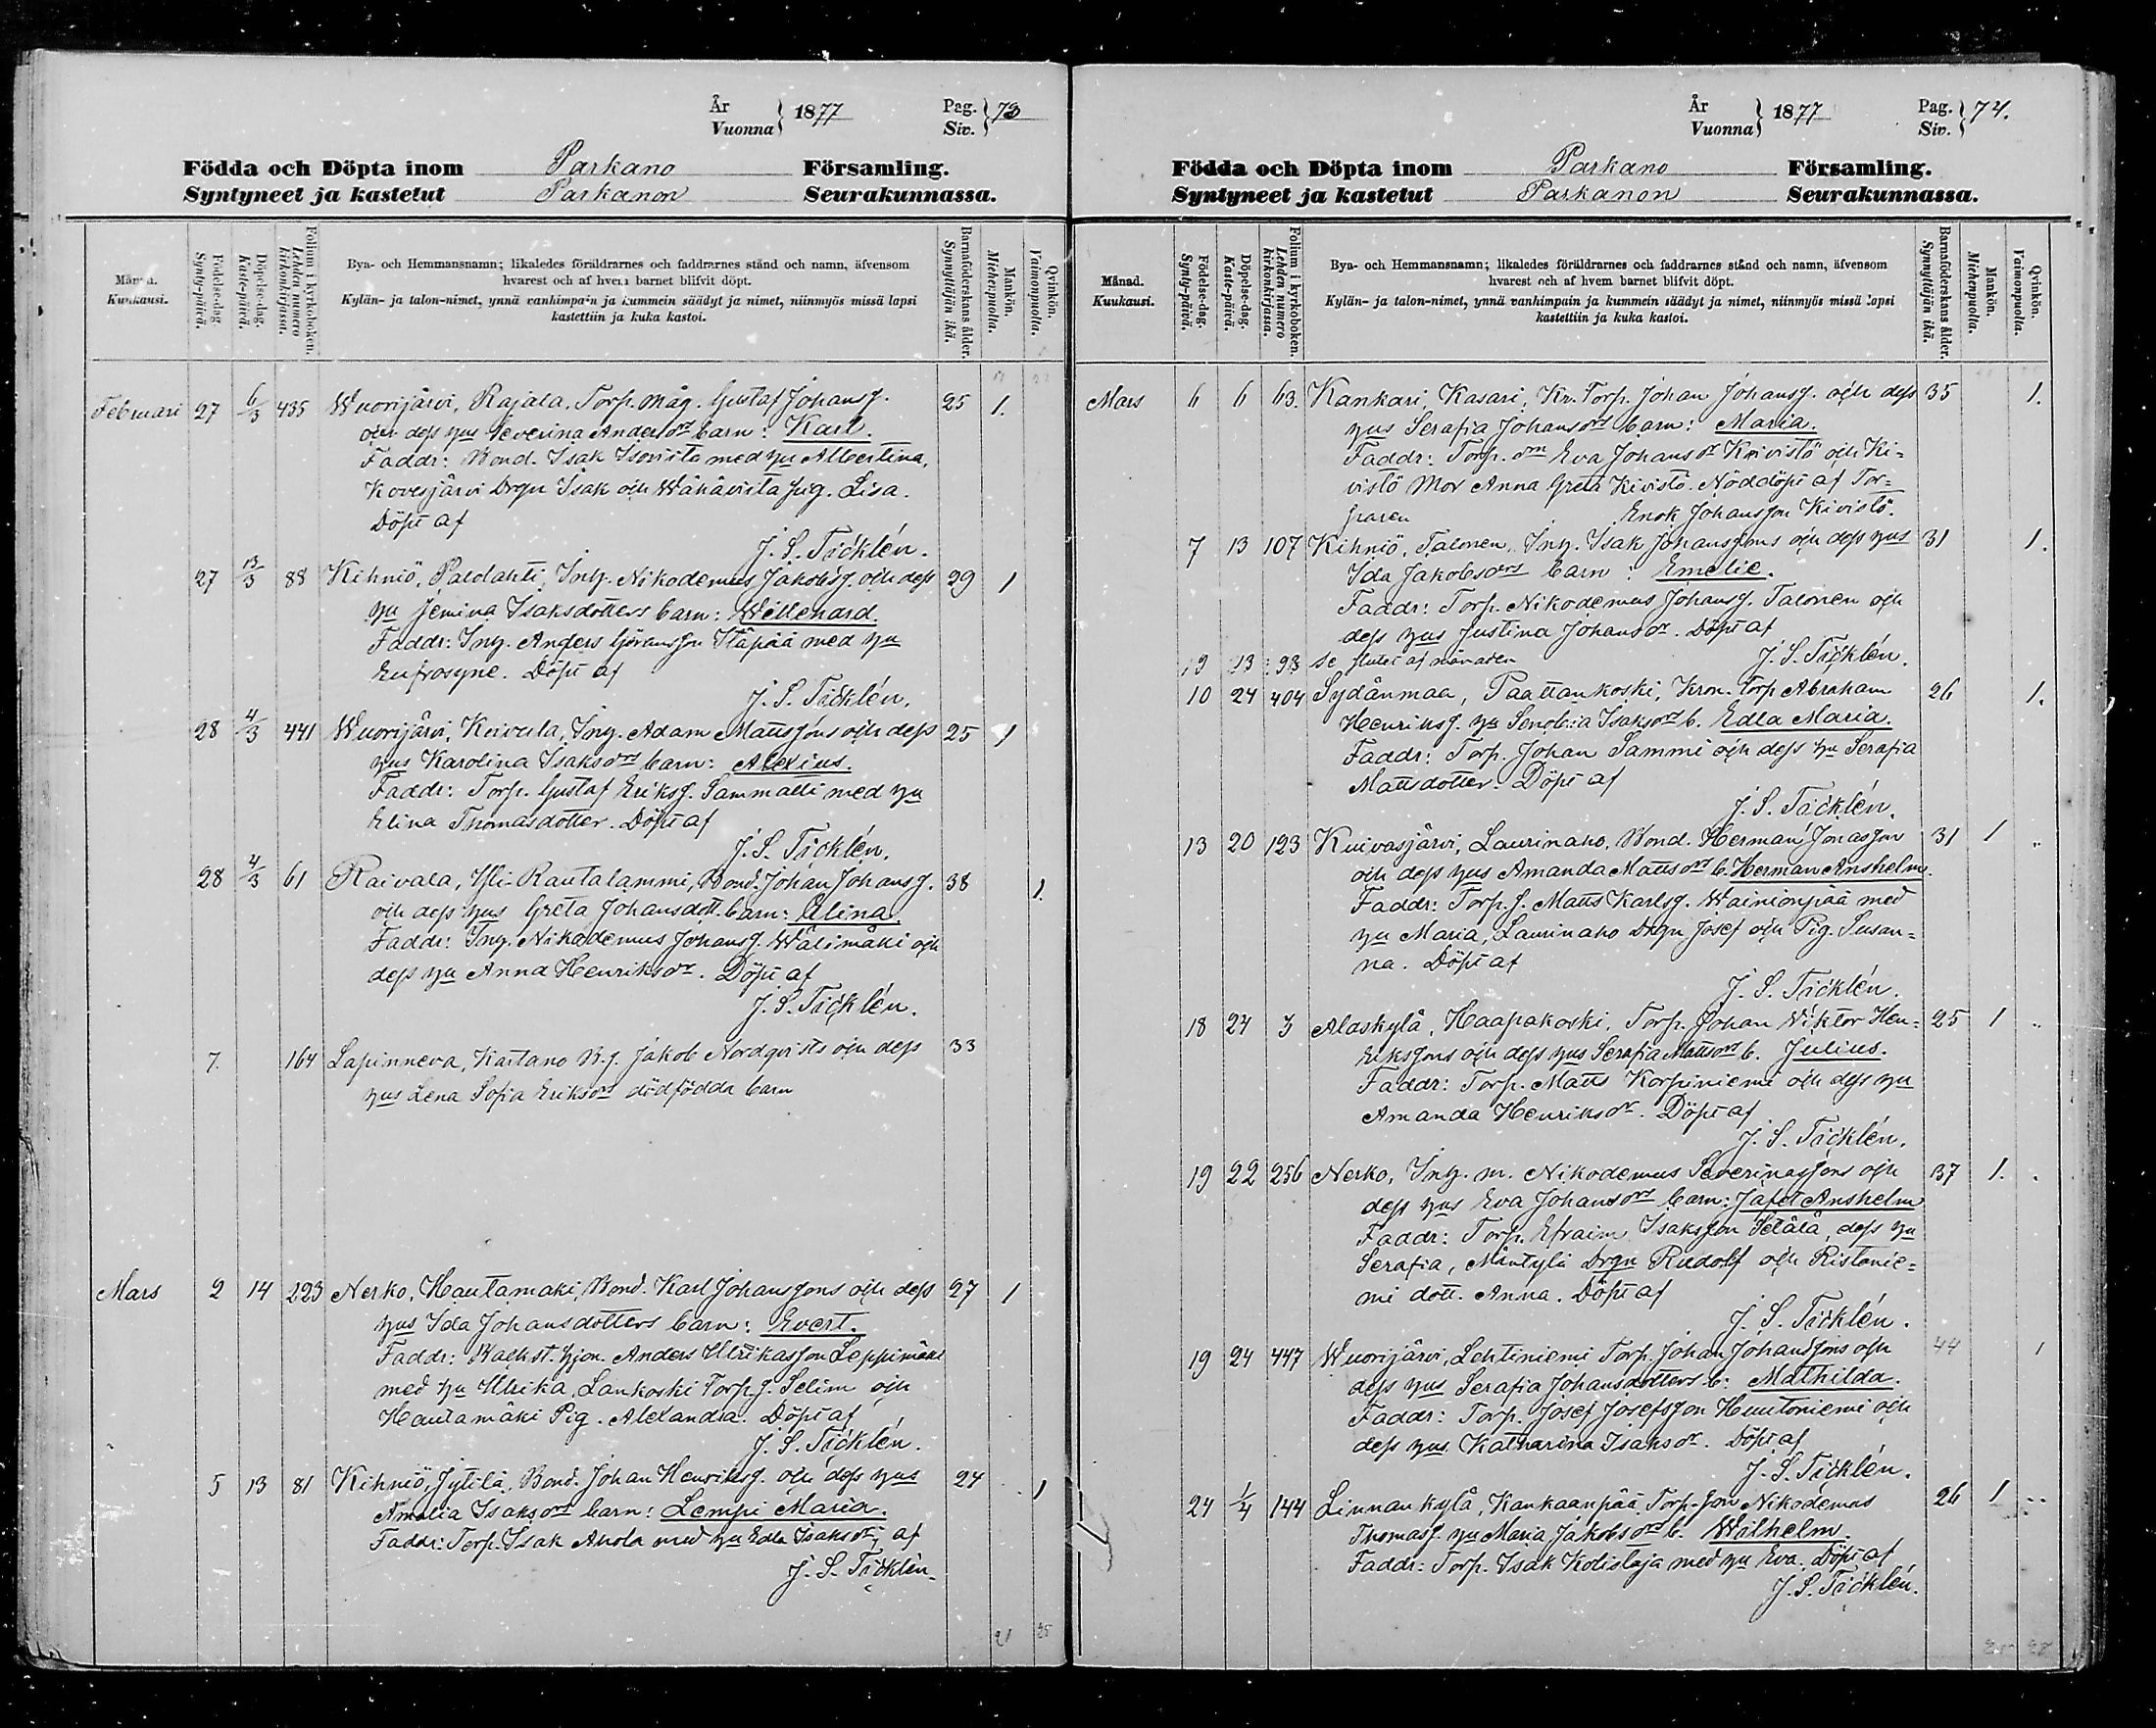 År
Vuonna } 1877 Pag.
Siv. } 73
Födda och Döpta inom Parkano Församling.
Syntyneet ja kastetut Parkanon Seurakunnassa.
Månad. Kuukausi.
Födelse-dag. Synty-päivä.
Döpelse-dag. Kaste-päivä.
Folium i kyrkoboken. Lehden numero kirkonkirjassa.
Bya- och Hemmansnamn; likaledes föräldrarnes och faddrarnes stånd och namn, äfvensom
hvarest och af hvem barnet blifvit döpt.
Kylän- ja talon-nimet, ynnä vanhimpain ja kummein säädyt ja nimet, niinmyös missä lapsi
kastettiin ja kuka kastoi.
Barnaföderskans ålder. Synnyttäjän ikä.
Mankön. Miehenpuolta.
Qvinkön. Vaimonpuolta.
Februari 27 6/3 435 Wuorijärvi, Rajala, Torp. måg. Gustaf Johansf. 25 1.
och dess hus Severina Andersdrs barn: Karl.
Faddr: Bond. Isak Isovista med hu Albertina,
Kovesjärvi Drgn Isak och Wähävista pig. Lisa.
Döpt af
J. S. Ticklén.
27 13/3 88 Kihniö, Palolahti, Inh. Nikodemus Jakobsf. och dess 29 1
hu Jemina Isaksdotters barn: Willehard.
Faddr: Inh. Anders Göransson Itäpää med hu
Eufrosyne. Döpt af
J. S. Ticklén.
28 4/3 441 Wuorijärvi, Koivula, Inh. Adam Mattssons och dess 25 1
hus Karolina Isaksdrs barn: Alexius.
Faddr: Torp. Gustaf Eriksf. Sammatti med hu
Elina Thomasdotter. Döpt af
J. S. Ticklén.
28 4/3 61 Raivala, Yli-Rautalammi, Bond. Johan Johansf. 38 1.
och dess hus Greta Johansdott. barn: Elina.
Faddr: Inh. Nikademus Johansf. Wälimäki och
dess hu Anna Henriksdr. Döpt af
J. S. Ticklén.
7. 164 Lapinneva, Kartano B.f. Jakob Nordqvists och dess 33
hus Lena Sofia Eriksdrs dödfödda barn
Mars 2 14 223 Nerko, Hautamaki, Bond. Karl Johanssons och dess 27 1
hus Ida Johansdotters barn: Evert.
Faddr: Backst. hjon. Anders Ulrikasson Leppimäki
med hu Ulrika, Lankoski Torp. f. Selim och
Hautamäki Pig. Alexandra. Döpt af
J. S. Ticklén.
5 13 81 Kihniö, Jytilä, Bond. Johan Henriksf. och dess hus 24 1
Amalia Isaksdrs barn: Lempi Maria.
Faddr: Torp. Isak Ahola med hu Edla Isaksdr, af
J. S. Ticklén.
21 25
År
Vuonna } 1877 Pag.
Siv. } 74.
Födda och Döpta inom Parkano Församling.
Syntyneet ja kastetut Parkanon Seurakunnassa.
Månad. Kuukausi.
Födelse-dag. Synty-päivä.
Döpelse-dag. Kaste-päivä.
Folium i kyrkoboken. Lehden numero kirkonkirjassa.
Bya- och Hemmansnamn; likaledes föräldrarnes och faddrarnes stånd och namn, äfvensom
hvarest och af hvem barnet blifvit döpt.
Kylän- ja talon-nimet, ynnä vanhimpain ja kummein säädyt ja nimet, niinmyös missä lapsi
kastettiin ja kuka kastoi.
Barnaföderskans ålder. Synnyttäjän ikä.
Mankön. Miehenpuolta.
Qvinkön. Vaimonpuolta.
Mars 6 6 63. Kankari, Kasari, Kr. Torp. Johan Johansf. och dess 35 1.
hus Serafia Johansdrs barn: Maria.
Faddr: Torp. drn Eva Johansdr Kivistö och Ki-
vistö Mor Anna Greta Kivistö. Nöddöpt af Tor-
paren Enok Johansson Kivistö.
7 13 107 Kihniö, Talonen, Inh. Isak Johanssons och dess hus 31 1.
Ida Jakobsdrs barn: Emelie.
Faddr: Torp. Nikodemus Johansf. Talonen och
dess hus Justina Johansdr. Döpt af
J. S. Ticklén.
19 13 93 se slutet af månaden
10 24 404 Sydänmaa, Paattankoski, Kron. Torp Abraham 26 1.
Henriksf. hu Senobia Isaksdrs b. Edla Maria.
Faddr: Torp. Johan Sammi och dess hu Serafia
Mattsdotter. Döpt af
J. S. Ticklén.
13 20 123 Kuivasjärvi, Laurinaho, Bond. Herman Jonasson 31 1
och dess hus Amanda Mattsdrs b. Herman Anshelm.
Faddr: Torp. f. Matts Karlsf. Wainionpää med
hu Maria, Laurinaho Drgn Josef och Pig. Susan-
na. Döpt af
J. S. Ticklén.
18 24 3 Alaskylä, Haapakoski, Torp. Johan Wiktor Hen- 25 1
rikssons och dess hus Serafia Mattsdrs b. Julius.
Faddr: Torp. Matts Korpiniemi och dess hu
Amanda Henriksdr. Döpt af
J. S. Ticklén.
19 22 256 Nerko, Inh. m. Nikodemus Severinassons och 37 1.
dess hus Eva Johansdrs barn: Jafet Anshelm
Faddr: Torp. Efraim Isaksson Setälä, dess hu
Serafia, Mäntylä Drgn Rudolf och Ristonie-
mi dott. Anna. Döpt af
J. S. Ticklén.
19 24 447 Wuorijärvi, Lehtiniemi Torp. Johan Johanssons och 44 1
dess hus Serafia Johansdotters b: Mathilda.
Faddr: Torp. Josef Josefsson Huutoniemi och
dess hus Katharina Isaksdr. Döpt af
J. S. Ticklén.
24 1/4 144 Linnankylä, Kankaanpää, Torp. son Nikodemus 26 1
Thomasf. hu Maria Jakobsdrs b. Wilhelm.
Faddr: Torp. Isak Kotistaja med hu Eva. Döpt af
J. S. Ticklén.